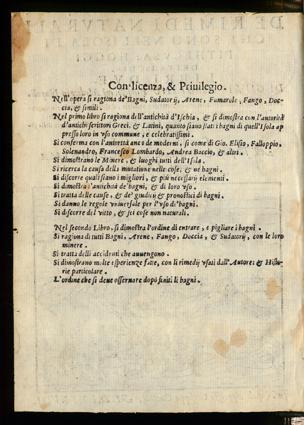 Con licenza, & Priuilegio.
Nell'opera si ragiona de' Bagni, Sudatorij, Arene, Fumarole, Fango, Doccia, & simili.
Nel primo libro si ragiona dell'antichità d'Ischia, & si dimostra con l'autorità
d'antichi scrittori Greci, & Latini, quanto siano stati i bagni di quell'Isola appresso
loro in vso commune, e celebratissimi.
Si conferma con l'autorità anco de moderni, si come di Gio. Elisio, Falloppio,
Solenandro, Francesco Lombardo, Andrea Baccio, & altri.
Si dimostrano le Minere, & luoghi tutti dell'Isola.
Si ricerca la causa della mutatione nelle cose, & ne bagni.
Si discorre quali siano i migliori, & più necessarij elementi.
Si dimostra l'antichità de' bagni, & di loro vso.
Si tratta delle cause, & de' giudicij & pronostici di bagni.
Si danno le regole vniuersale per l'vso di' bagni.
Si discorre del vitto, & sei cose non naturali.
Nel secondo Libro, si dimostra l'ordine di entrare, e pigliare i bagni.
Si ragiona di tutti Bagni, Arene, Fango, Doccia, & Sudatorij, con le loro
minere.
Si tratta delli accidenti che auuengono.
Si dimostrano molte esperienze fatte, con li rimedij vsati dall'Autore: & Historie
particolare.
L'ordine che si deue osseruare dopò finiti li bagni.